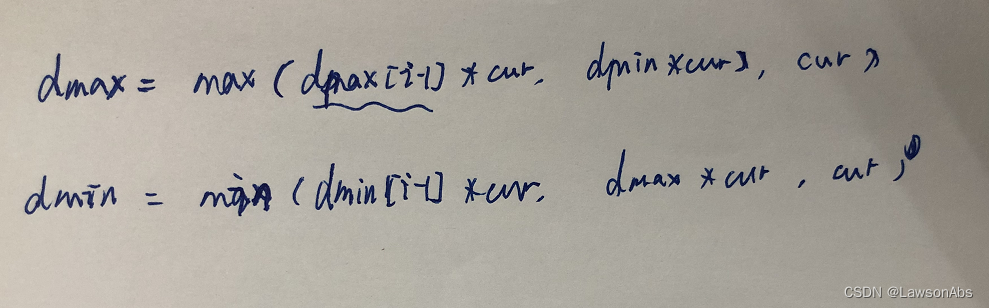 dmax = max ( dmax[i-1] * cur, dmin * cur ) , cur )
dmin = min ( dmin[i-1] * cur, dmax * cur , cur )
CSDN @LawsonAbs